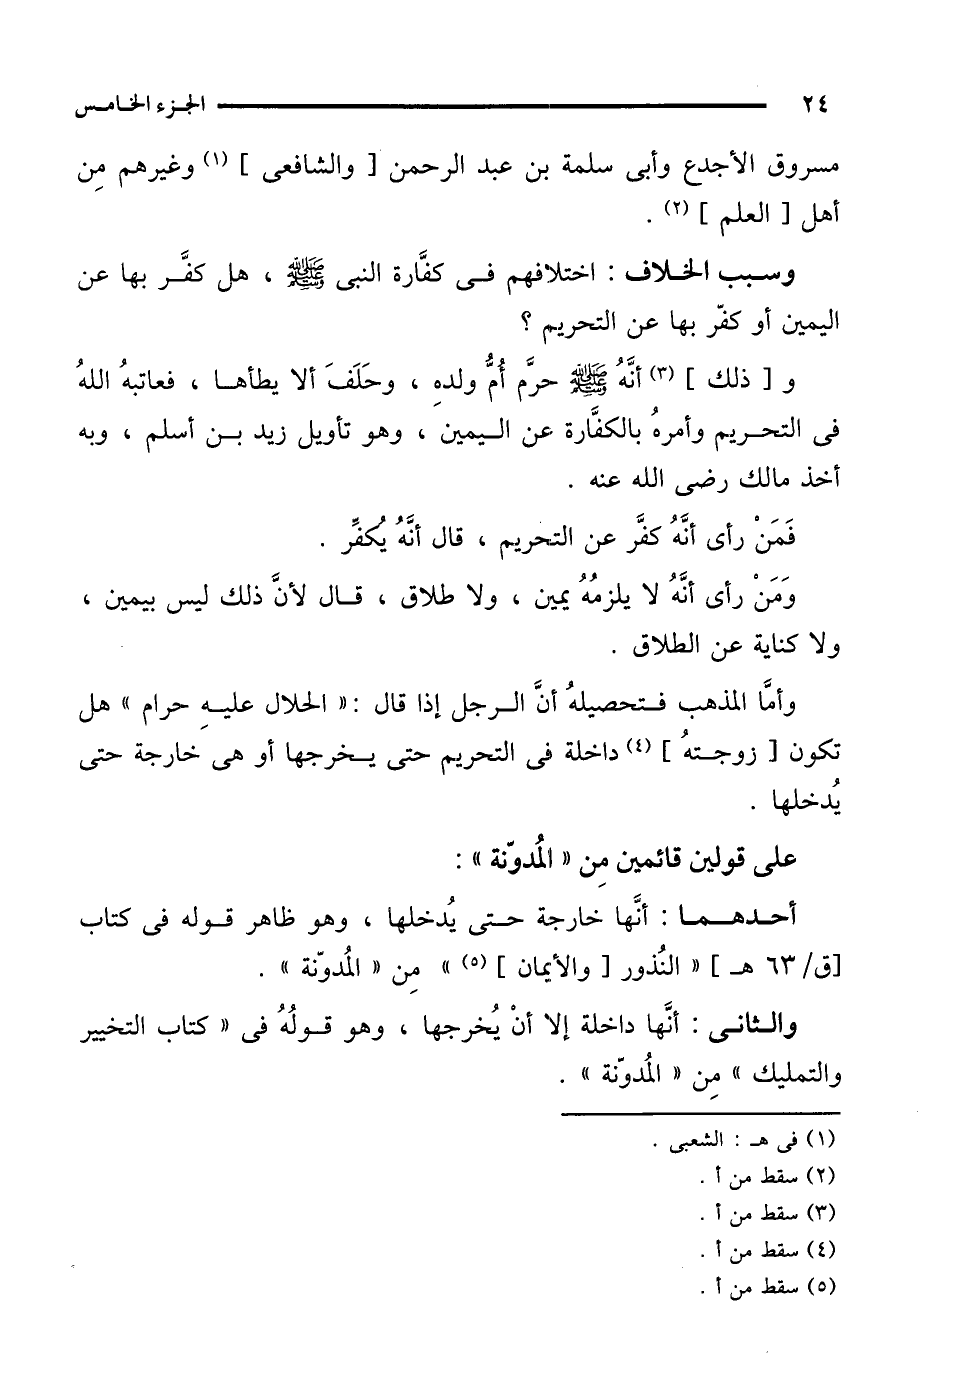 ٢٤ الجزء الخامس
مسروق الأجدع وأبى سلمة بن عبد الرحمن [ والشافعى ] (١) وغيرهم مِن
أهل [ العلم ] (٢) .
وسبب الخلاف : اختلافهم فى كفَّارة النبى ﷺ ، هل كفَّر بها عن
اليمين أو كفّر بها عن التحريم ؟
و [ ذلك ] (٣) أنَّهُ ﷺ حرَّم أُمُّ ولدهِ ، وحَلَفَ ألا يطأهـا ، فعاتبهُ اللهُ
فى التحريم وأمرهُ بالكفَّارة عن اليمين ، وهو تأويل زيد بن أسلم ، وبه
أخذ مالك رضى الله عنه .
فَمَنْ رأى أنَّهُ كفَّر عن التحريم ، قال أنَّهُ يُكفِّر .
وَمَنْ رأى أنَّهُ لا يلزمُهُ يمين ، ولا طلاق ، قال لأنَّ ذلك ليس بيمين ،
ولا كناية عن الطلاق .
وأمَّا المذهب فتحصيلهُ أنَّ الرجل إذا قال :« الحلال عليهِ حرام » هل
تكون [ زوجتهُ ] (٤) داخلة فى التحريم حتى يخرجها أو هى خارجة حتى
يُدخلها .
على قولين قائمين مِن « المُدوّنة » :
أحدهما : أنَّها خارجة حتى يُدخلها ، وهو ظاهر قوله فى كتاب
[ق/ ٦٣ هـ ] « النُذور [ والأيمان ] (٥) » مِن « المُدوّنة » .
والثانى : أنَّها داخلة إلا أنْ يُخرجها ، وهو قولُهُ فى « كتاب التخيير
والتمليك » مِن « المُدوّنة » .
(١) فى هـ : الشعبى .
(٢) سقط من أ .
(٣) سقط من أ .
(٤) سقط من أ .
(٥) سقط من أ .